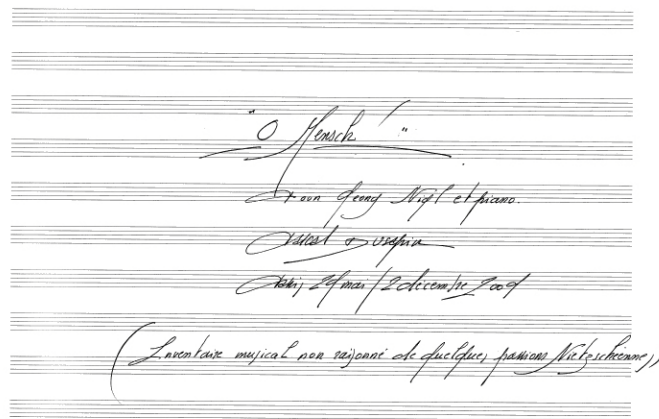 "O Mensch!"
Pour Georg Nigl et piano.
Pascal Dusapin
Paris, 29 mai / 2 décembre 2009
(Inventaire musical non raisonné de quelques passions Nietzschéennes)